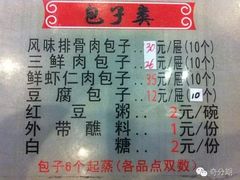 包子类
风味排骨肉包子..30元/屉(10个)
三鲜肉包子...26元/屉(10个)
鲜虾仁肉包子..35元/屉(10个)
豆腐包子...12元/屉(10个)
红豆粥...2元/碗
外带蘸料...1元/份
白糖...2元/份
包子6个起蒸(各品点双数)
奇分期